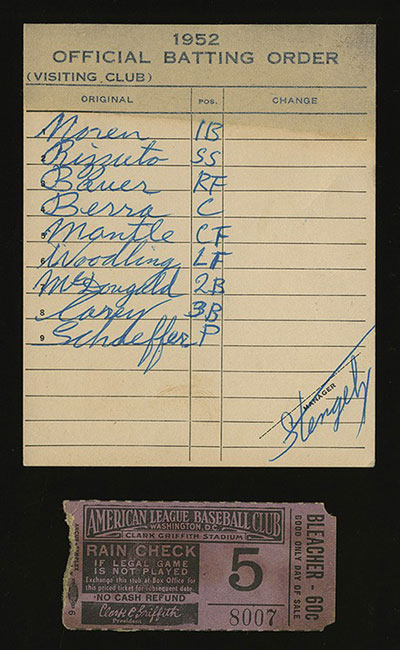 1952
OFFICIAL BATTING ORDER
(VISITING CLUB)
ORIGINAL POS. CHANGE
Noren 1B
2 Rizzuto SS
3 Bauer RF
4 Berra C
5 Mantle CF
6 Woodling LF
7 McDougald 2B
8 Carey 3B
9 Schaeffer P
MANAGER
Stengel
AMERICAN LEAGUE BASEBALL CLUB
WASHINGTON, D.C.
CLARK GRIFFITH STADIUM
RAIN CHECK
IF LEGAL GAME
IS NOT PLAYED
Exchange this stub at Box Office for
this priced ticket for subsequent date.
NO CASH REFUND
Clark C. Griffith
President
5
8007
BLEACHER 60c
GOOD ONLY DAY OF SALE